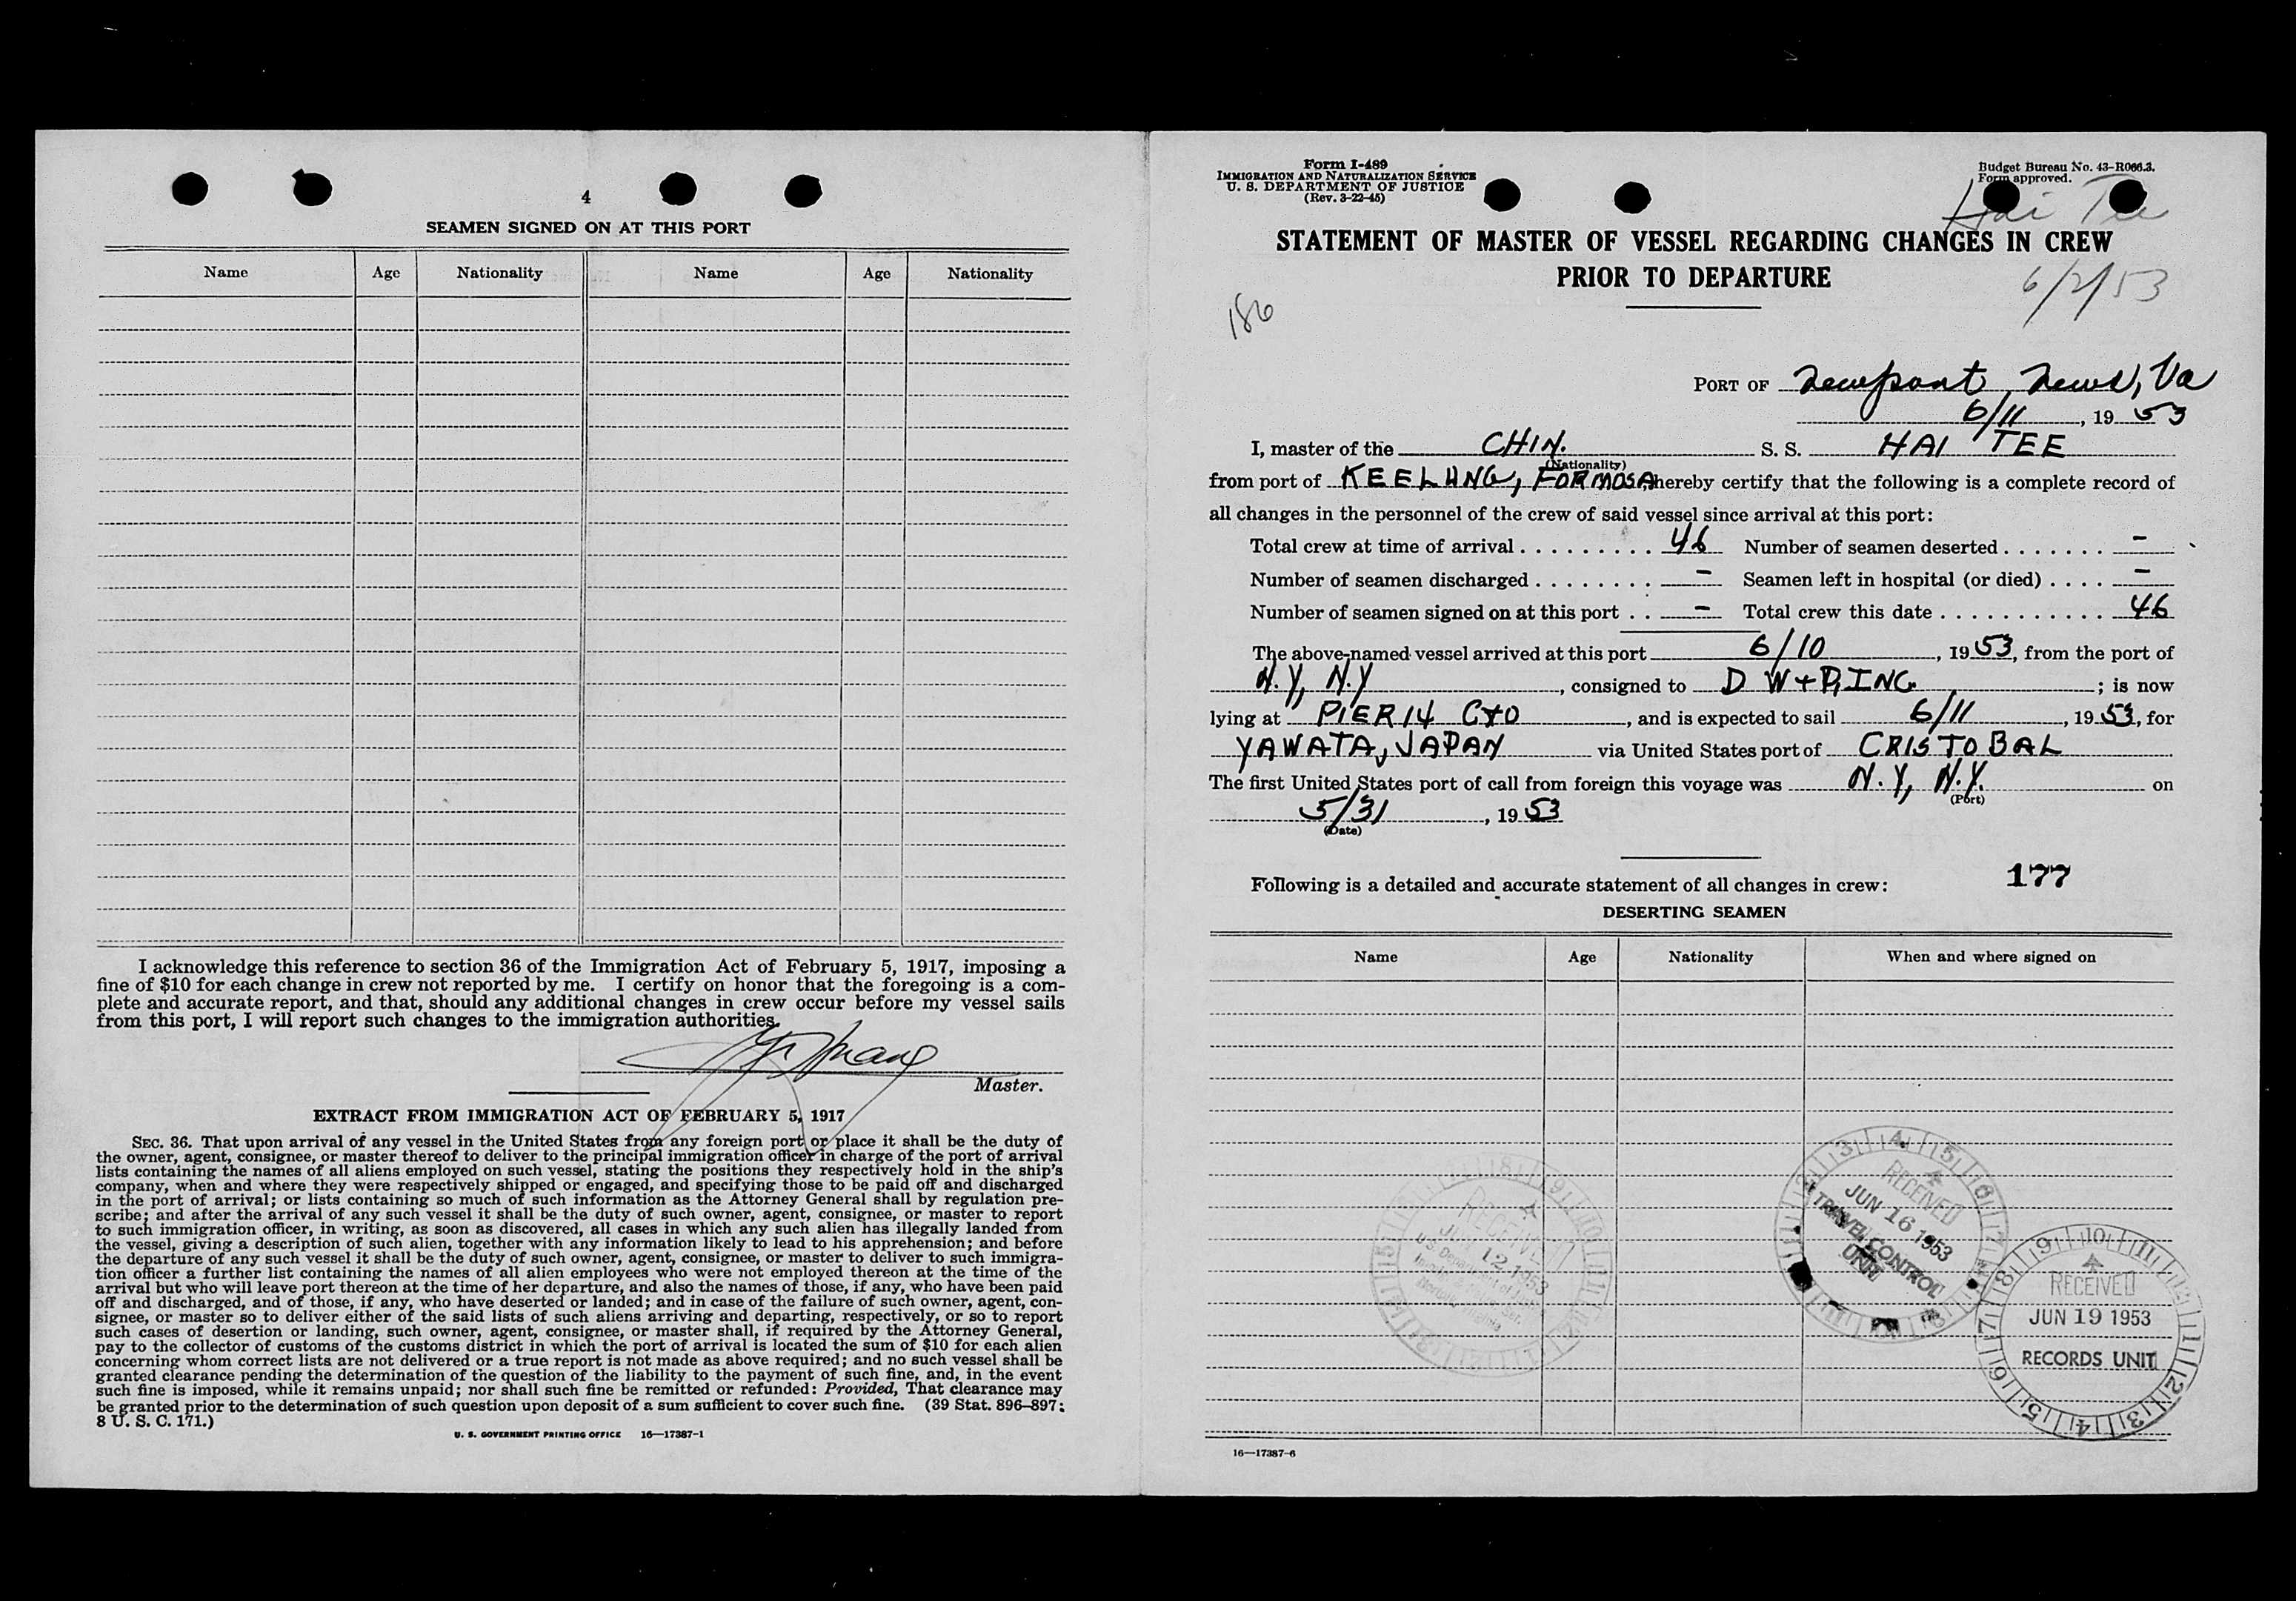 4
SEAMEN SIGNED ON AT THIS PORT
Name Age Nationality Name Age Nationality
I acknowledge this reference to section 36 of the Immigration Act of February 5, 1917, imposing a
fine of $10 for each change in crew not reported by me. I certify on honor that the foregoing is a com-
plete and accurate report, and that, should any additional changes in crew occur before my vessel sails
from this port, I will report such changes to the immigration authorities.
Master.
EXTRACT FROM IMMIGRATION ACT OF FEBRUARY 5, 1917
SEC. 36. That upon arrival of any vessel in the United States from any foreign port or place it shall be the duty of
the owner, agent, consignee, or master thereof to deliver to the principal immigration officer in charge of the port of arrival
lists containing the names of all aliens employed on such vessel, stating the positions they respectively hold in the ship's
company, when and where they were respectively shipped or engaged, and specifying those to be paid off and discharged
in the port of arrival; or lists containing so much of such information as the Attorney General shall by regulation pre-
scribe; and after the arrival of any such vessel it shall be the duty of such owner, agent, consignee, or master to report
to such immigration officer, in writing, as soon as discovered, all cases in which any such alien has illegally landed from
the vessel, giving a description of such alien, together with any information likely to lead to his apprehension; and before
the departure of any such vessel it shall be the duty of such owner, agent, consignee, or master to deliver to such immigra-
tion officer a further list containing the names of all alien employees who were not employed thereon at the time of the
arrival but who will leave port thereon at the time of her departure, and also the names of those, if any, who have been paid
off and discharged, and of those, if any, who have deserted or landed; and in case of the failure of such owner, agent, con-
signee, or master so to deliver either of the said lists of such aliens arriving and departing, respectively, or so to report
such cases of desertion or landing, such owner, agent, consignee, or master shall, if required by the Attorney General,
pay to the collector of customs of the customs district in which the port of arrival is located the sum of $10 for each alien
concerning whom correct lists are not delivered or a true report is not made as above required; and no such vessel shall be
granted clearance pending the determination of the question of the liability to the payment of such fine, and, in the event
such fine is imposed, while it remains unpaid; nor shall such fine be remitted or refunded: Provided, That clearance may
be granted prior to the determination of such question upon deposit of a sum sufficient to cover such fine. (39 Stat. 896-897;
8 U. S. C. 171.)
U. S. GOVERNMENT PRINTING OFFICE 16—17387-1
Form I-489
IMMIGRATION AND NATURALIZATION SERVICE
U. S. DEPARTMENT OF JUSTICE
(Rev. 3-22-45)
Budget Bureau No. 43-R066.3.
Form approved.
Hai Tee
STATEMENT OF MASTER OF VESSEL REGARDING CHANGES IN CREW
PRIOR TO DEPARTURE
6/2/53
186
PORT OF Newport News, Va
6/11, 19 53
I, master of the CHIN. S. S. HAI TEE
(Nationality)
from port of KEELUNG, FORMOSA, hereby certify that the following is a complete record of
all changes in the personnel of the crew of said vessel since arrival at this port:
Total crew at time of arrival . . . . . . . . . 46 Number of seamen deserted . . . . . . . -
Number of seamen discharged . . . . . . . . - Seamen left in hospital (or died) . . . . -
Number of seamen signed on at this port . . - Total crew this date . . . . . . . . . . . 46
The above-named vessel arrived at this port 6/10, 19 53, from the port of
N.Y, N.Y, consigned to D W + P, INC. ; is now
lying at PIER 14 C+O, and is expected to sail 6/11, 19 53, for
YAWATA, JAPAN via United States port of CRISTOBAL
The first United States port of call from foreign this voyage was N.Y, N.Y. on
(Port)
5/31, 19 53
(Date)
Following is a detailed and accurate statement of all changes in crew: 177
DESERTING SEAMEN
Name Age Nationality When and where signed on
RECEIVED
JUN 12 1953
U.S. Department of Justice
RECEIVED
JUN 16 1953
TRAVEL CONTROL
UNIT
RECEIVED
JUN 19 1953
RECORDS UNIT
16—17387-6